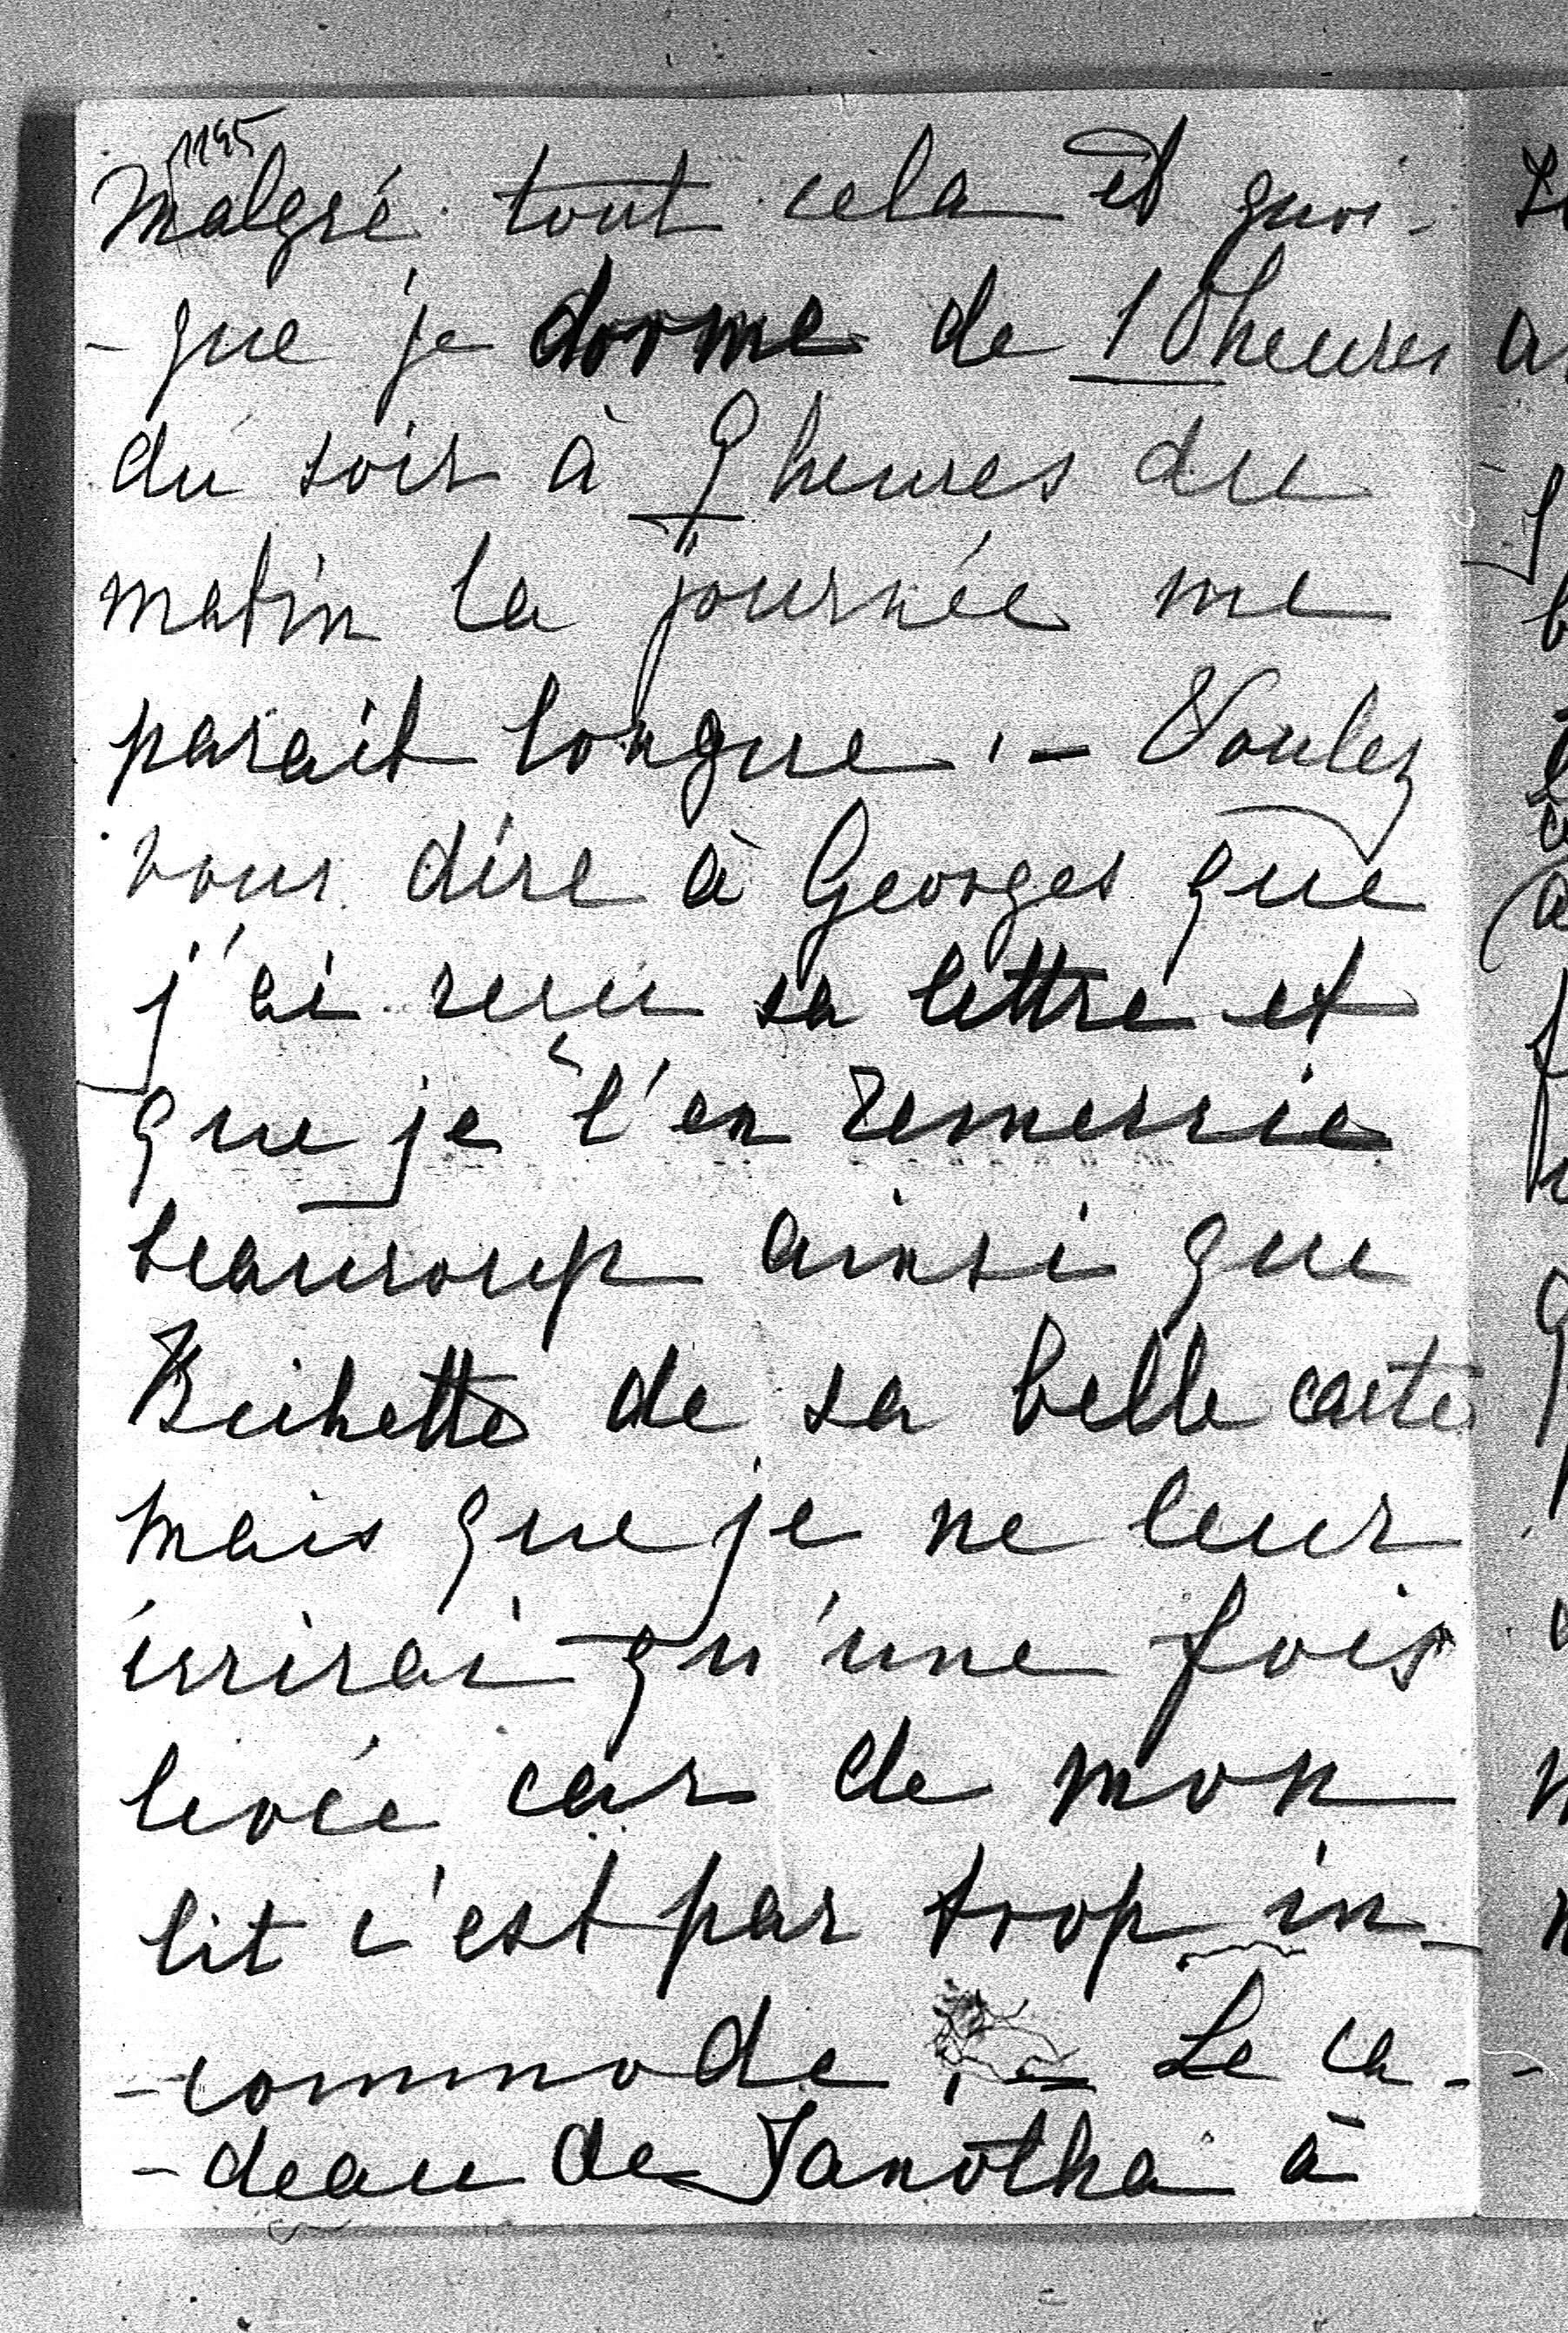 1195
Malgré tout cela et quoi-
-que je dorme de 10 heures
du soir à 9 heures du
matin la journée me
parait longue. - Voulez
vous dire à Georges que
j'ai reçu sa lettre et
que je l'en remercie
beaucoup ainsi que
de sa belle carte
mais que je ne leur
écrirai qu'une fois
levée car de mon
lit c'est par trop in-
-commode. - Le ca-
-deau de Janotha à